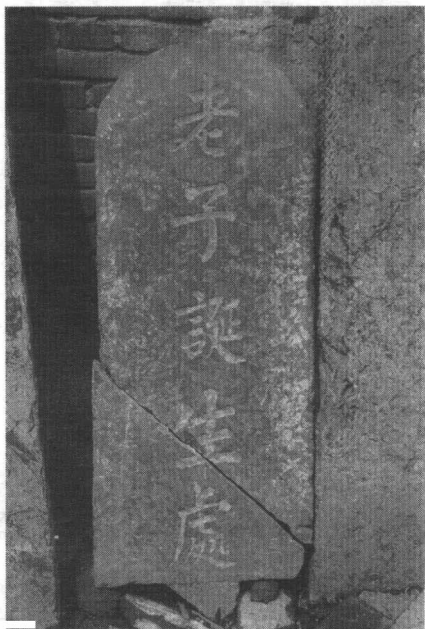 老子誕生處